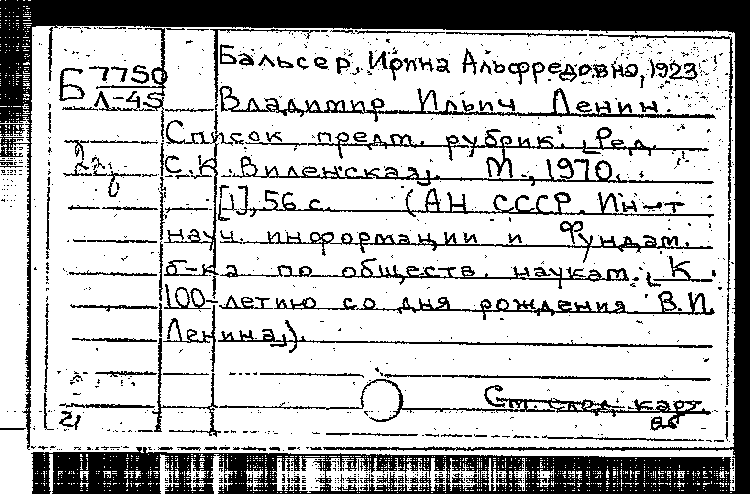 Бальсер, Ирина Альфредовна, 1923
Б 7750
Л-45
Владимир Ильич Ленин.
Список предм. рубрик. [Ред.
С.К. Виленская]. М., 1970.
[1], 56 с. (АН СССР. Ин-т
науч. информации и Фундам.
б-ка по обществ. наукам. [К
100-летию со дня рождения В.И.
Ленина]).
См. след. карт.
21